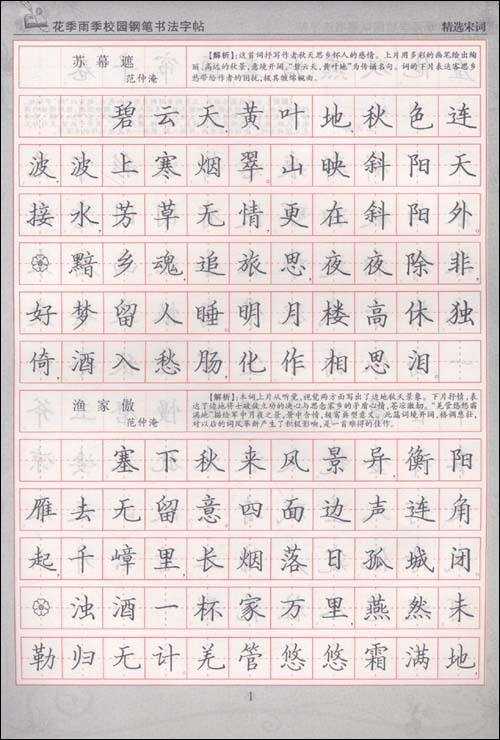 花季雨季校园钢笔书法字帖
精选宋词
苏幕遮
范仲淹
【解析】:这首词抒写作者秋天思乡怀人的感情。上片用多彩的画笔绘出绚
丽、高远的秋景,意境开阔。“碧云天,黄叶地”为传诵名句。词的下片表达客思乡
愁带给作者的困扰,极其缠绵婉曲。
碧云天黄叶地秋色连
波,波上寒烟翠。山映斜阳天
接水,芳草无情,更在斜阳外。
黯乡魂,追旅思,夜夜除非,
好梦留人睡。明月楼高休独
倚,酒入愁肠,化作相思泪。
渔家傲
范仲淹
【解析】:本词上片从听觉,视觉两方面写出了边地秋天景象。下片抒情,表
达了边地将士破敌立功的决心与思念家乡的矛盾心情,苍凉激切。“羌管悠悠霜
满地”描绘军中月夜之景,景中含情,极富典型意义。此篇词境开阔,格调悲壮,
对以后的词风革新产生了积极影响,是一首难得的佳作。
塞下秋来风景异,衡阳
雁去无留意。四面边声连角
起。千嶂里,长烟落日孤城闭。
浊酒一杯家万里,燕然未
勒归无计。羌管悠悠霜满地。
1